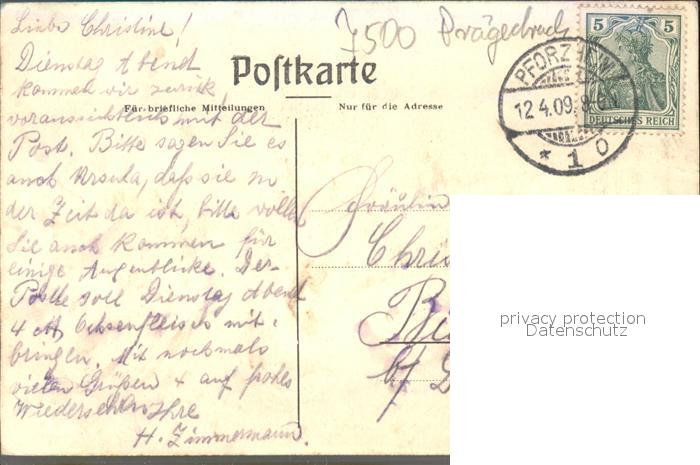 Liebe Christine!
Dienstag Abend
kommen wir zurück,
voraussichtlich mit der
Post. Bitte sagen Sie es
auch Ursula, daß sie zu
der Zeit da ist, bitte wollen
Sie auch kommen für
einige Augenblicke. Der
soll Dienstag Abend
4 Ochsenfleisch mit-
bringen. Mit nochmals
vielen Grüßen + auf frohes
Wiedersehen Ihre
H. Zimmermann.
7500 Prägedruck
Postkarte
Für briefliche Mitteilungen
Nur für die Adresse
5 5
DEUTSCHES REICH
PFORZHEIM
12.4.09.
* 1 0
Fräulein
Chris
b/
privacy protection
Datenschutz